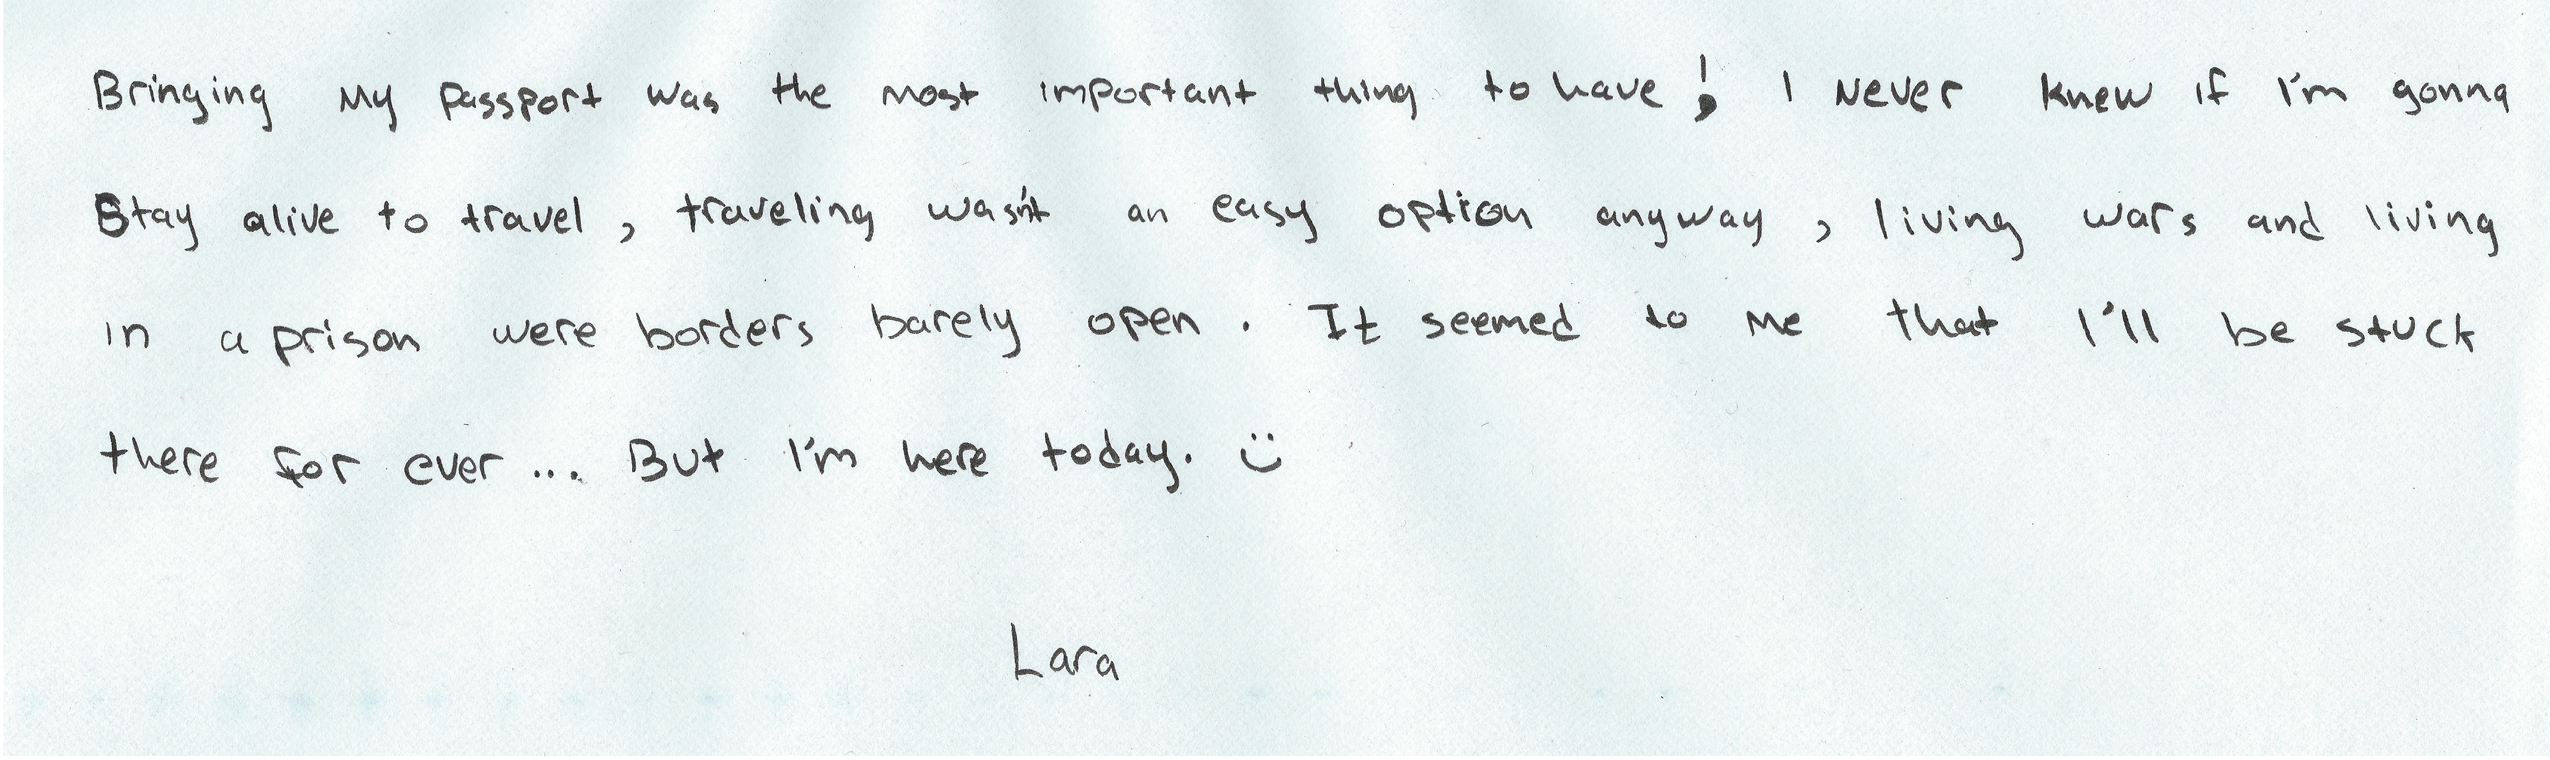 Bringing My Passport was the most important thing to have! I Never knew if I'm gonna
Stay alive to travel, traveling wasn't an easy option anyway, living wars and living
in a prison were borders barely open. It seemed to me that I'll be stuck
there for ever... But I'm here today. :)
Lara